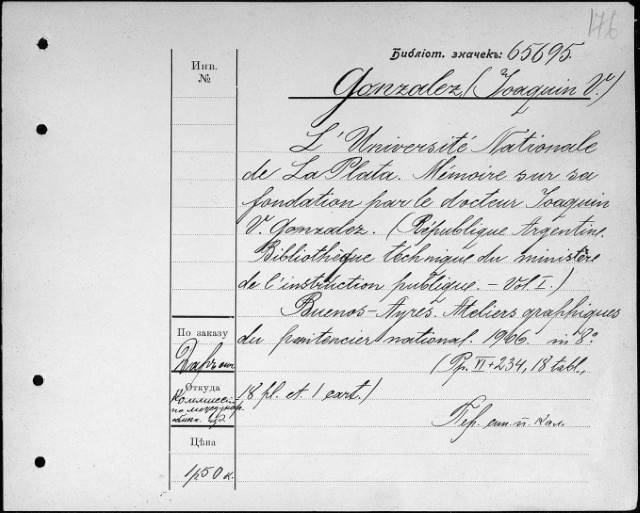 176
Библіот. значекъ: 65695.
Инв.
№
Gonzalez, (Joaquin V.)
L'Université Nationale
de La Plata. Mémoire sur sa
fondation par le docteur Joaquin
V. Gonzalez. (République Argentine.
Bibliothèque technique du ministère
de l'instruction publique. – Vol I.)
Buenos-Ayres. Ateliers graphiques
du penitencier national. 1906 in 8°
(Pp. VI + 234, 18 tabl.,
18 pl. et 1 cart.)
По заказу
Даръ
Откуда
Коммис.
по междунар.
Цѣна
1р50 к.